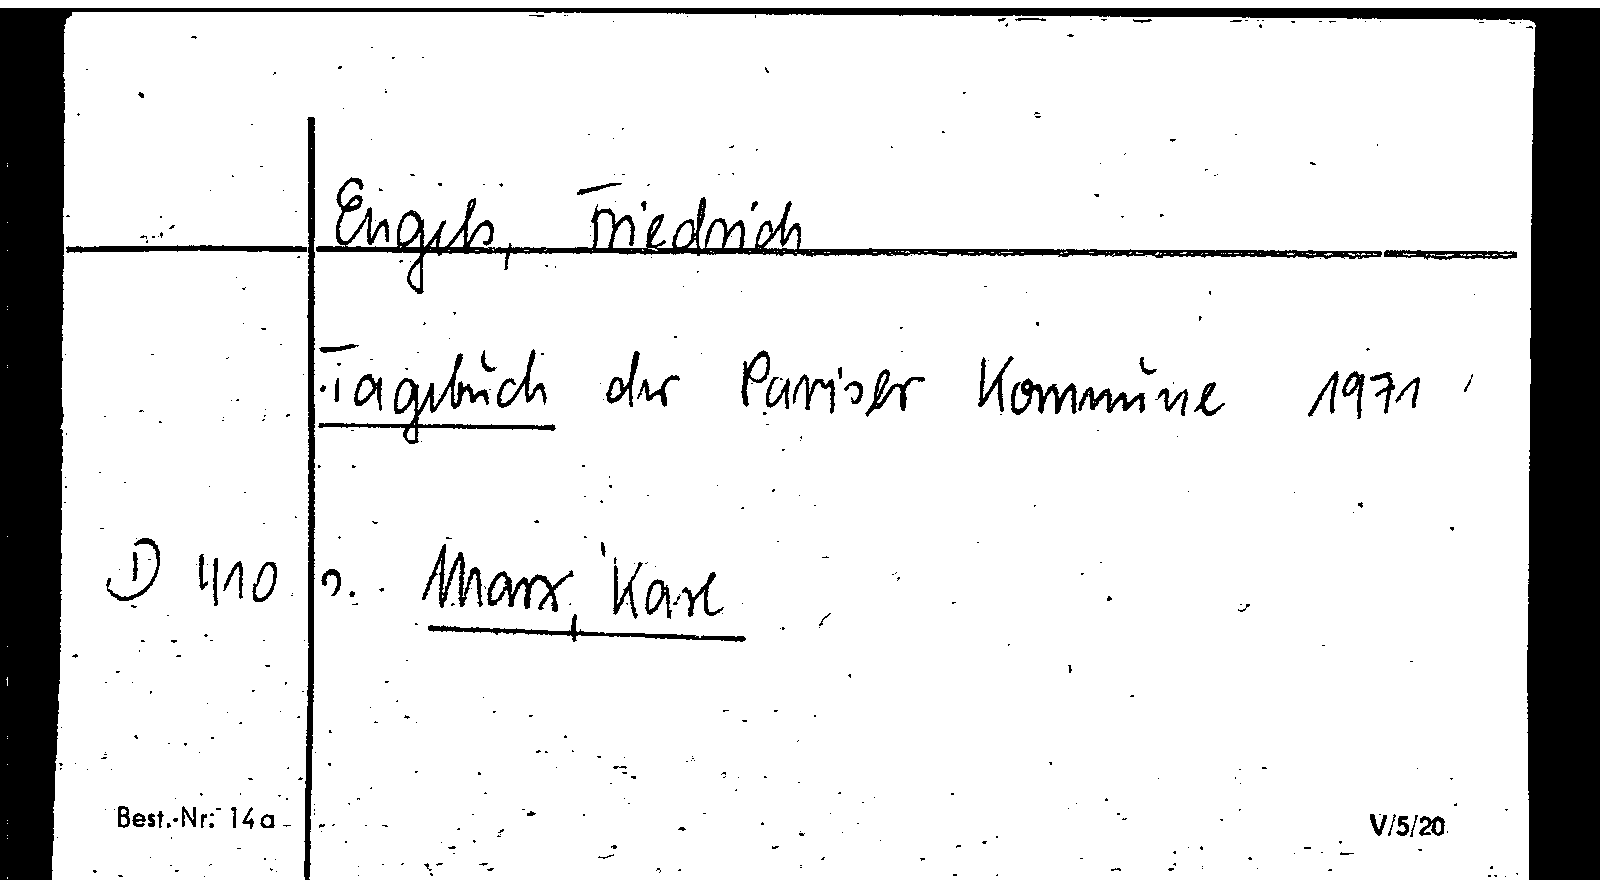 Engels, Friedrich
Tagebuch der Pariser Kommune 1971
D 410 s. Marx, Karl
Best.-Nr: 14a V/5/20